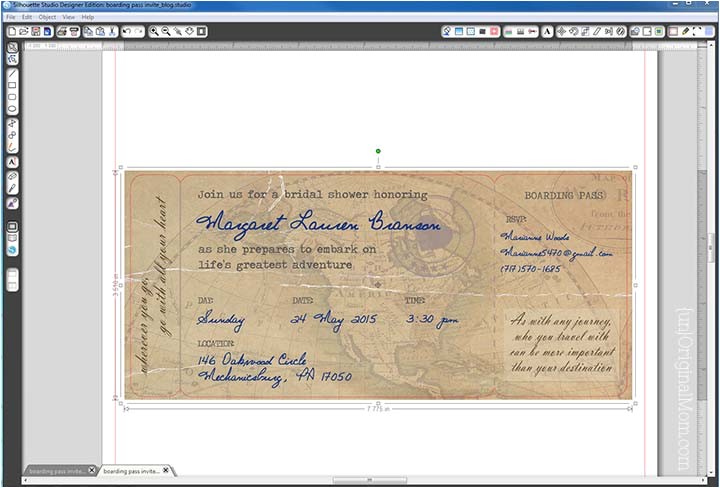 Silhouette Studio Designer Edition: boarding pass invite_blog.studio
File Edit Object View Help
Join us for a bridal shower honoring
Margaret Lauren Branson
as she prepares to embark on
life's greatest adventure
DAY:
DATE:
TIME:
Sunday
24 May 2015
3:30 pm
LOCATION:
146 Oakwood Circle
Mechanicsburg, PA 17050
wherever you go,
go with all your heart
BOARDING PASS
RSVP:
Marianne Woods
Marianne5470@gmail.com
(717)570-1685
As with any journey,
who you travel with
can be more important
than your destination
AMERICA
7.775 in
{un}OriginalMom.com
boarding pass invite...
boarding pass invite...